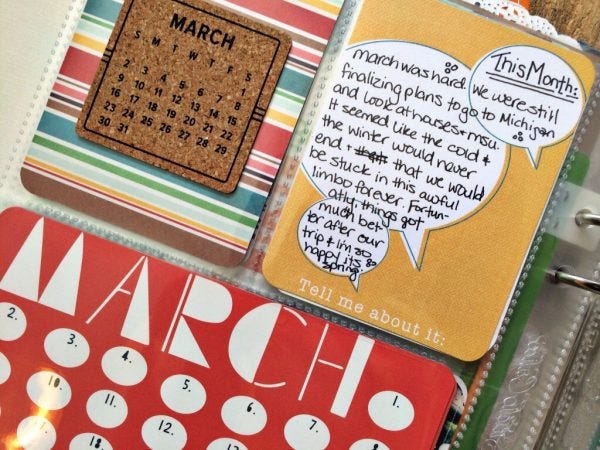 MARCH
S M T W T F S
1
2 3 4 5 6 7 8
9 10 11 12 13 14 15
16 17 18 19 20 21 22
23 24 25 26 27 28 29
30 31
This Month:
march was hard. we were still
finalizing plans to go to Michigan
and look at houses + msu.
It seemed like the cold +
the winter would never
end + that we would
be stuck in this awful
limbo forever. Fortun-
atly, things got
much bet
ter after our
trip + i'm so
happy its
spring.
Tell me about it:
MARCH
1.
2. 3. 4. 5. 6. 7.
10. 11. 12.
18.